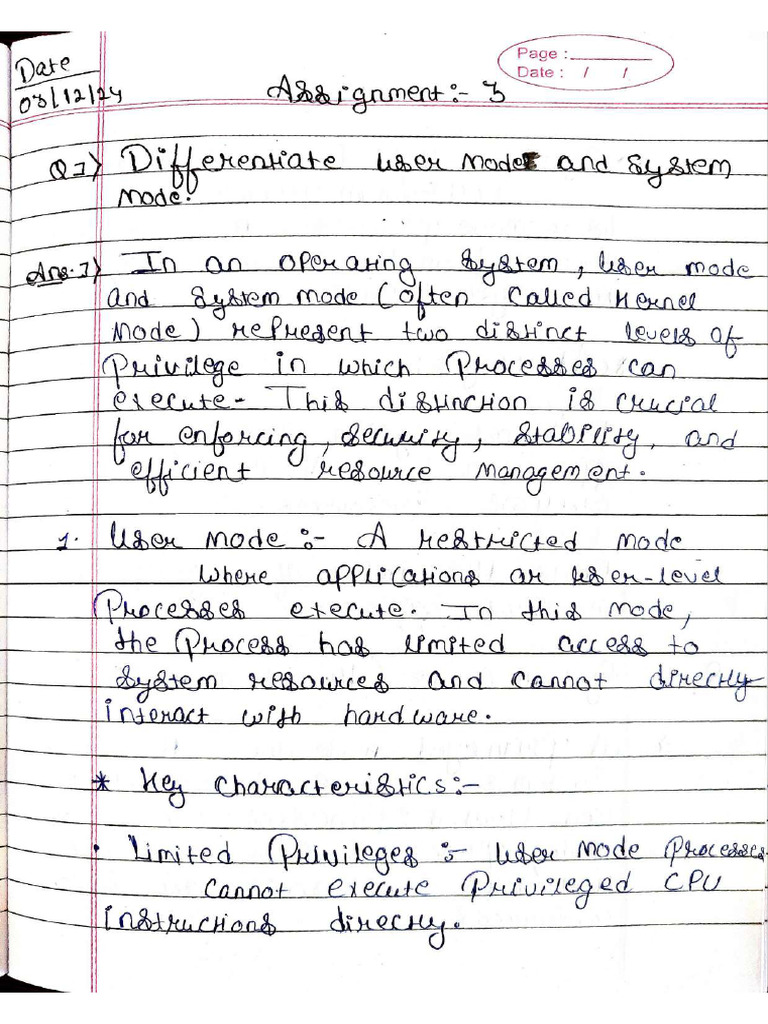 Page :
Date : / /
Date
03/12/24
Assignment :- 3
Q 1) Differentiate user mode and system
mode.
Ans. 1) In an operating system, user mode
and system mode (often called kernel
mode) represent two distinct levels of
privilege in which processes can
execute. This distinction is crucial
for enforcing, security, stability, and
efficient resource management.
1. User mode :- A restricted mode
where applications or user-level
processes execute. In this mode,
the process has limited access to
system resources and cannot directly
interact with hardware.
* Key characteristics :-
• Limited Privileges :- User mode processes
cannot execute privileged CPU
instructions directly.